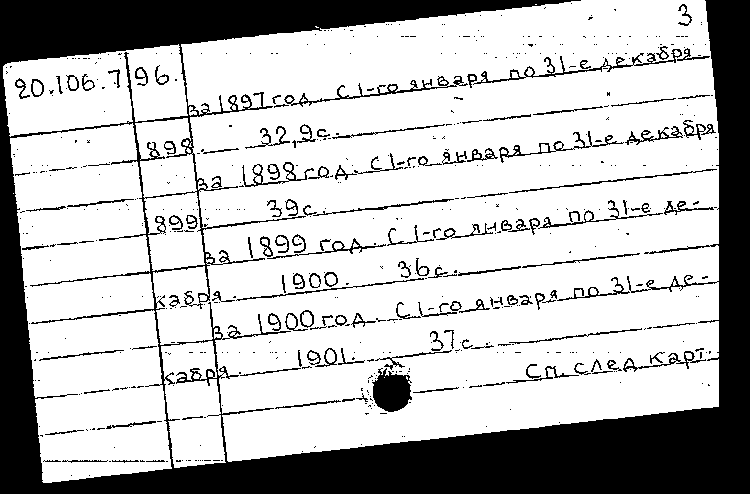 3
20.106.7.96.
за 1897 год. С 1-го января по 31-е декабря
898. 32,9с.
за 1898 год. С 1-го января по 31-е декабря
1899. 39с.
за 1899 год. С 1-го января по 31-е де-
кабря. 1900. 36с.
за 1900 год. С 1-го января по 31-е де-
кабря. 1901. 37с.
См. след карт.